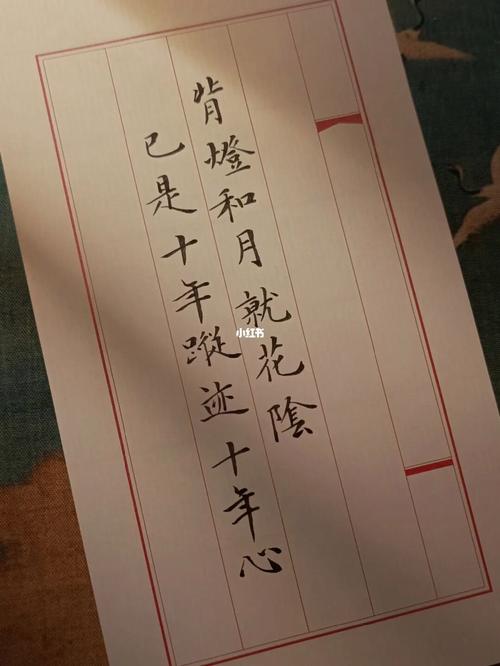 背燈和月就花陰
已是十年蹤迹十年心
小红书